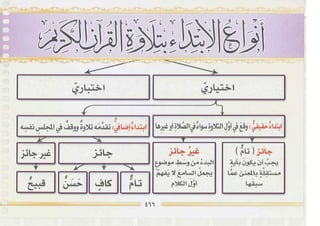 أنواع الابتداء بتلاوة القرآن الكريم
اختياريّ
اختباريّ
ابتداءٌ حقيقيٌّ : وقعَ في أوّلِ التلاوةِ سواءٌ في الصَّلاةِ أو غيرِها
ابتداءٌ إضافيٌّ : تقدَّمَه تلاوةٌ ووقفٌ في المجلسِ نفسِه
جائز ( تامٌّ )
يجبُ أن يكونَ بآيةٍ
مستقلّةٍ بالمعنى عمّا
سبقها
غيرُ جائز
البدءُ من وسَطِ موضوعٍ
يجعلُ السامعَ لا يفهمُ
أوّل الكلام
جائز
غير جائز
تامٌّ
كافٍ
حَسَنٌ
قبيحٌ
٤٦٦